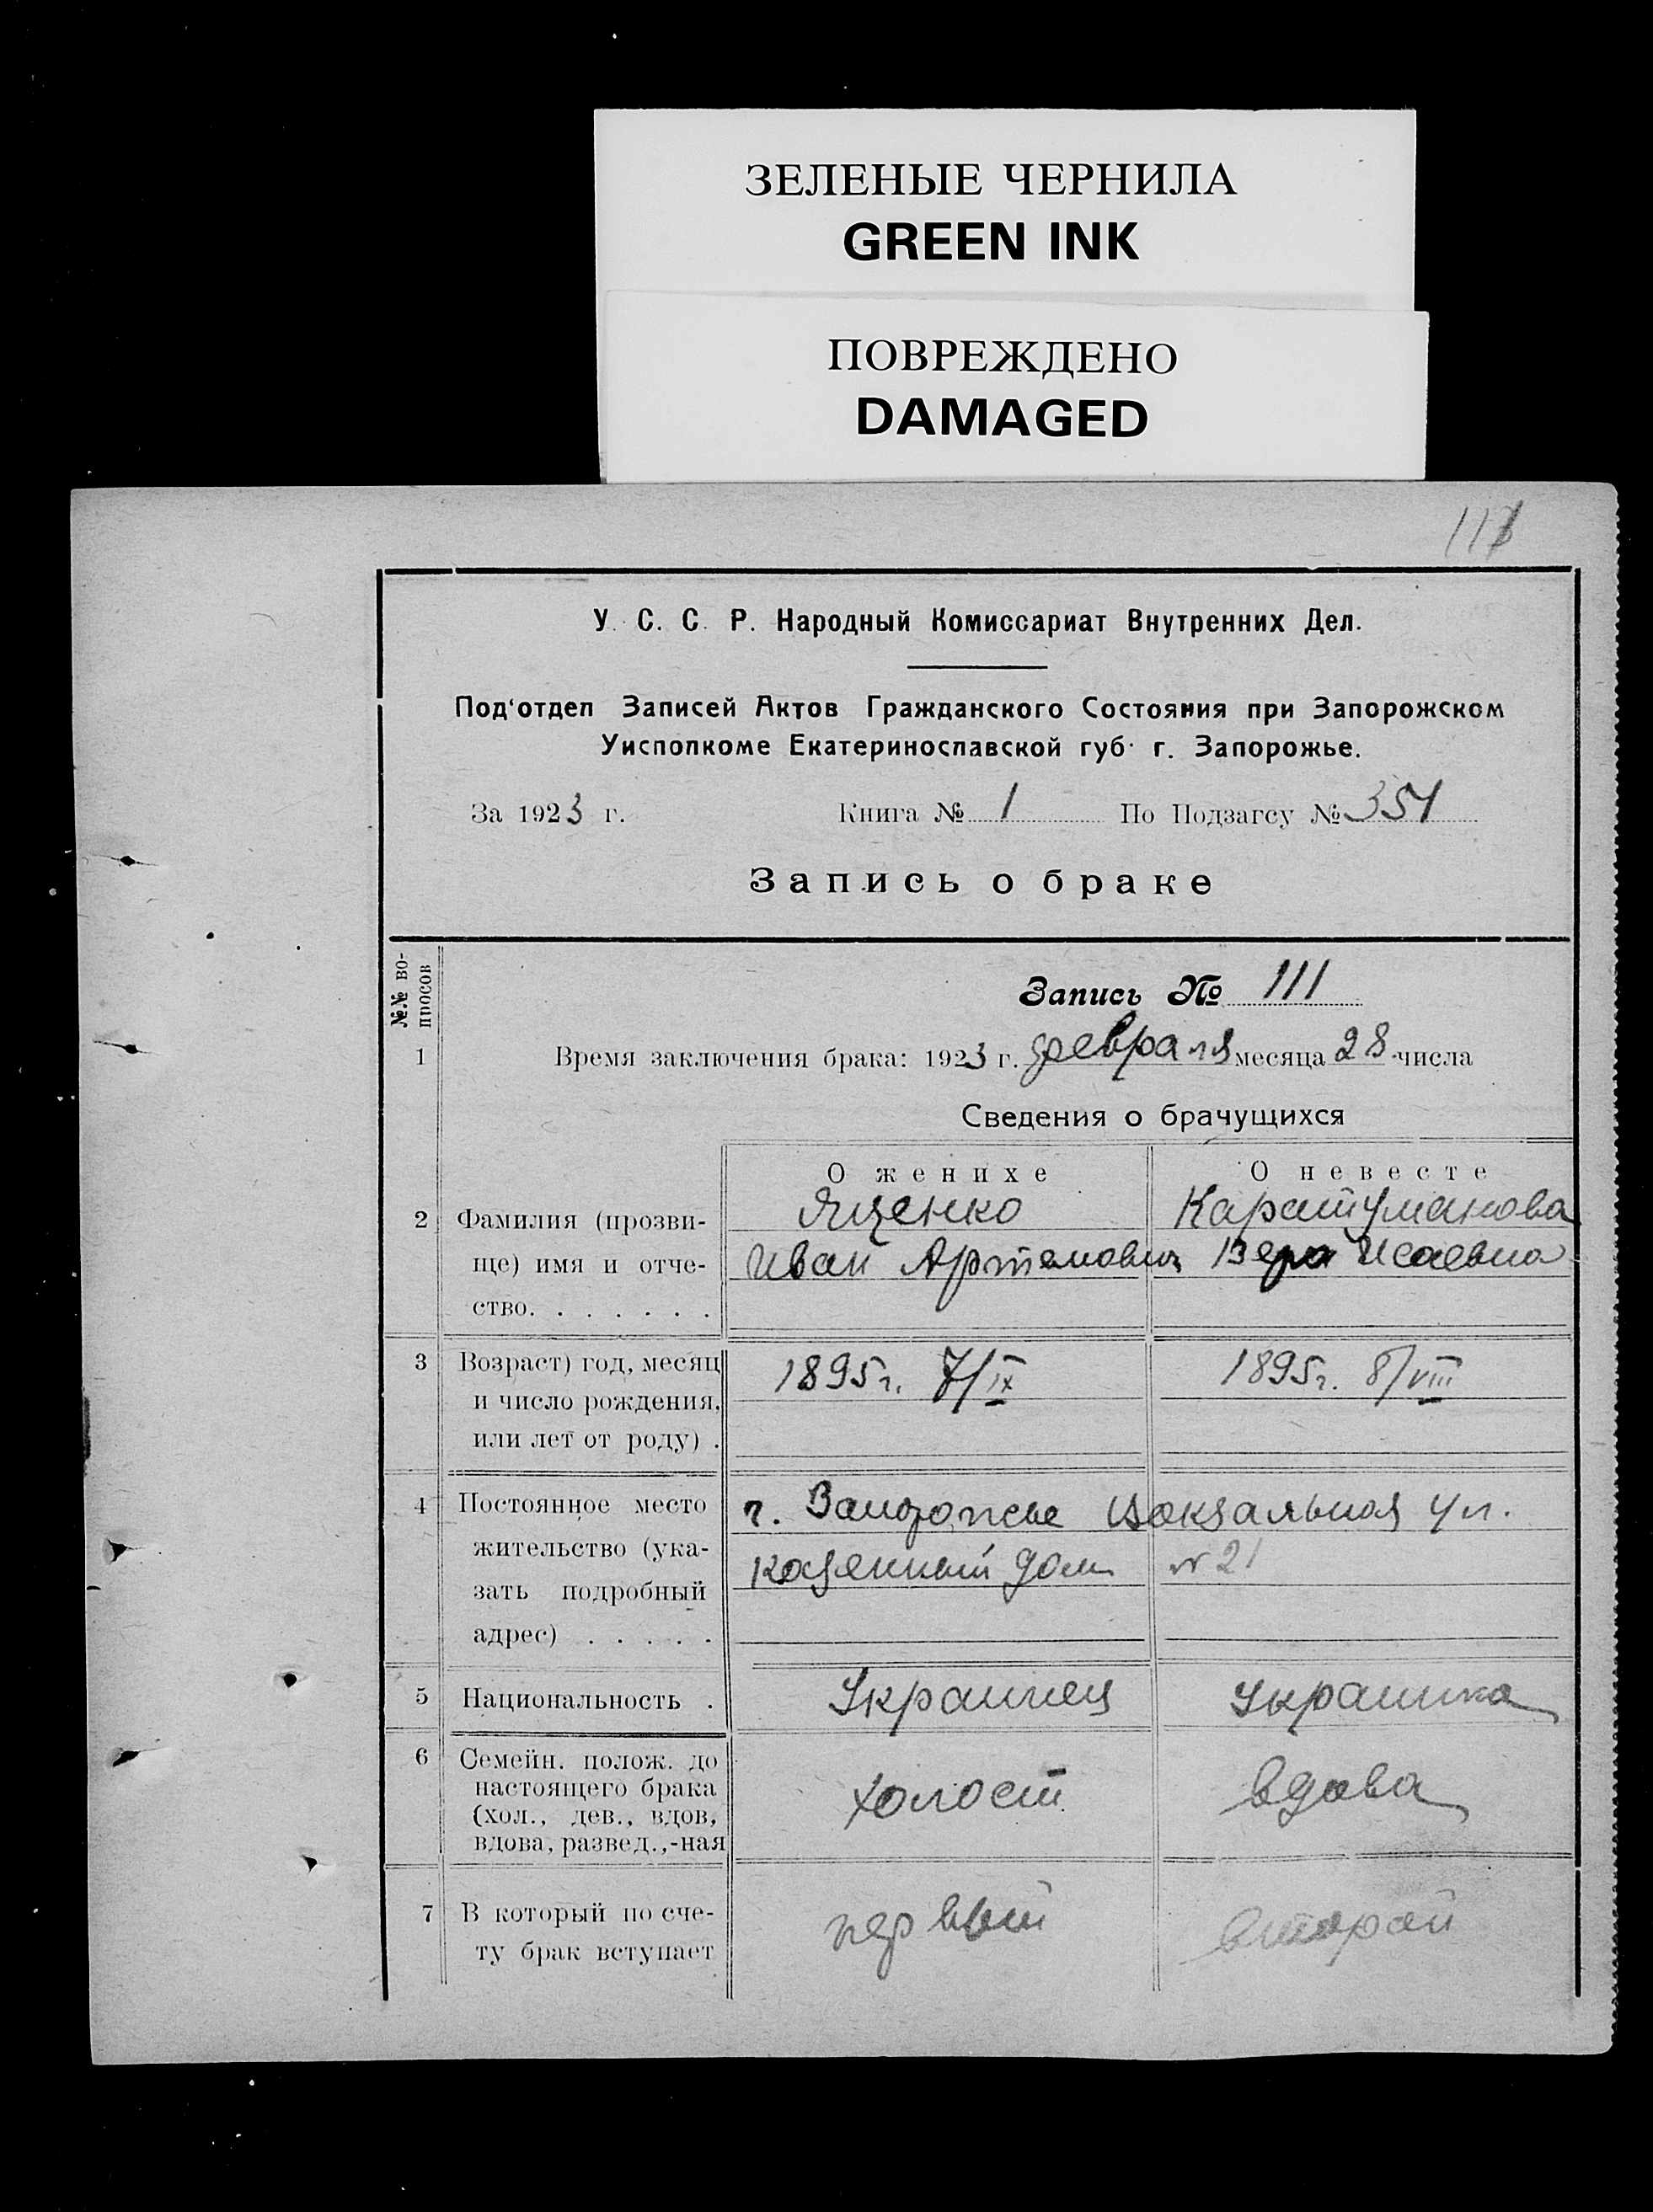 ЗЕЛЕНЫЕ ЧЕРНИЛА
GREEN INK
ПОВРЕЖДЕНО
DAMAGED
У. С. С. Р. Народный Комиссариат Внутренних Дел.
Под‘отдел Записей Актов Гражданского Состояния при Запорожском
Уисполкоме Екатеринославской губ. г. Запорожье.
За 1923 г. Книга № 1 По Подзагсу № 351
Запись о браке
№.№ во-
просов
Запись № 111
1 Время заключения брака: 1923 г. февраля месяца 28 числа
Сведения о брачущихся
О женихе О невесте
2 Фамилия (прозви- Ященко Караштуманова
ще) имя и отче- Иван Артемович Вера Исаевна
ство. . . . . . .
3 Возраст) год, месяц 1895 г. 7/IX 1895 г. 8/VIII
и число рождения,
или лет от роду) .
4 Постоянное место г. Запорожье Вокзальная ул.
жительство (ука- казенный дом № 21
зать подробный
адрес) . . . . .
5 Национальность . Украинец Украинка
6 Семейн. полож. до
настоящего брака холост вдова
(хол., дев., вдов,
вдова, развед.,-ная
7 В который по сче- первый второй
ту брак вступает